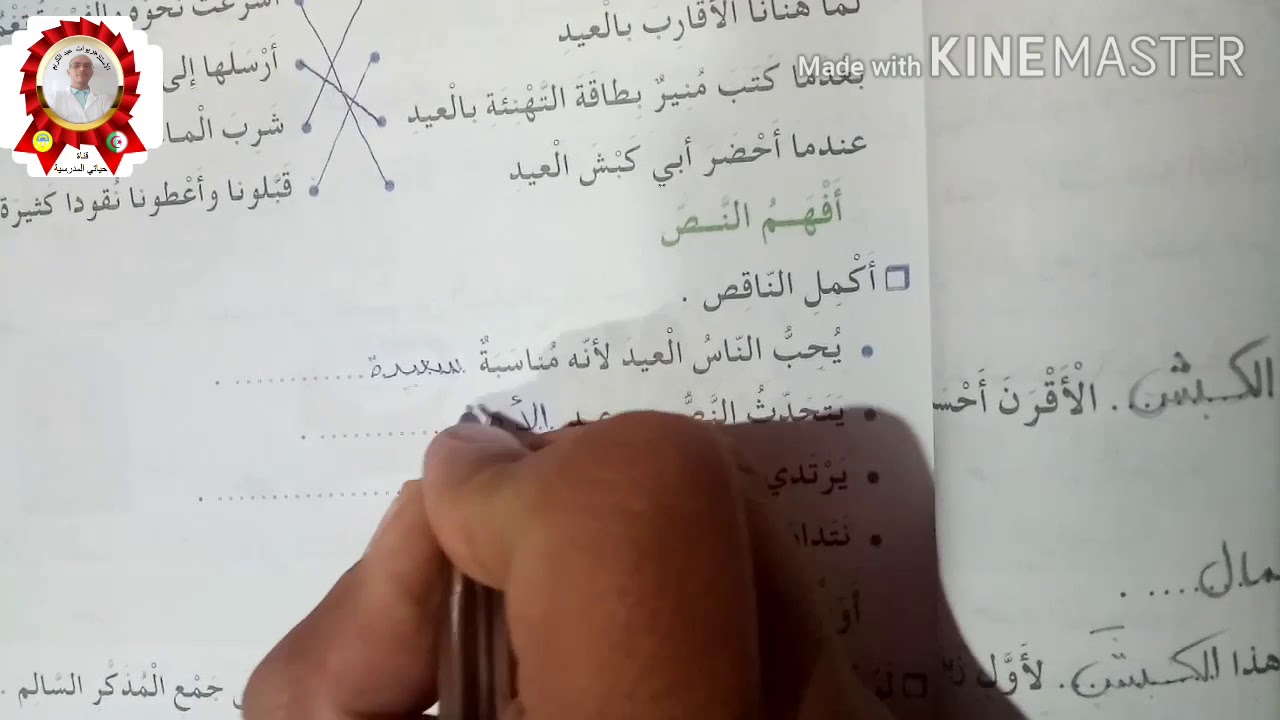 Made with KINEMASTER
قناة
حياتي المدرسية
لما هنأنا الأقارب بالْعيدِ
بعدما كَتَبَ مُنيرٌ بِطاقَةَ التَّهْنِئَةِ بالْعيدِ
أَرْسَلها إلى
عندما أحْضَرَ أبي كَبْشَ الْعيدِ
شَرِبَ الْما
قَبَّلونا وأَعْطونا نُقودا كَثيرَة
أَفْهَـمُ النَّـصَ
أَكْمِلِ النّاقِص .
يُحِبُّ النّاسُ الْعيدَ لأنّه مُناسَبَةٌ سعيدة
يَتَحَدّثُ النَّصُّ عيد الأ
يَرْتَدي
نَتَدا
أَوَ
جَمْع الْمُذَكَّر السَّالم .
الكبش . الْأَقْرَنَ أَحْسَ
مال
هذا الكبش . لأَوَّل